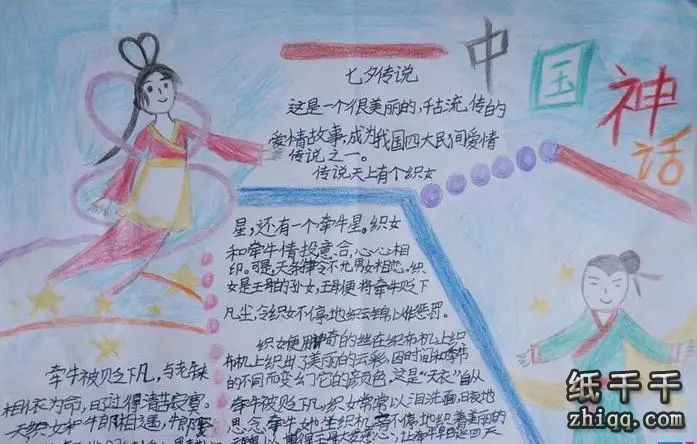 中国神话
七夕传说
这是一个很美丽的,千古流传的
爱情故事,成为我国四大民间爱情
传说之一。
传说天上有个织女
星,还有一个牵牛星。织女
和牵牛情投意合,心心相
印。可是,天条律令不允男女相恋。织
女是王母的孙女,王母便将牵牛贬下
凡尘,令织女不停地织云锦以作惩罚。
织女便用神奇的丝在织布机上织
布机上织出了美丽的云彩,因时间和季节
的不同而变幻它的颜色,这是“天衣”自从
牵牛被贬下凡,织女常常以泪洗面,日夜地
思念牵牛,她坐织机旁不停地织着美丽的
牵牛被贬下凡,与老
相依为命,日子过得清苦寂寞。
织女和牛郎相遇,牛郎
纸千千
zhiqq.com